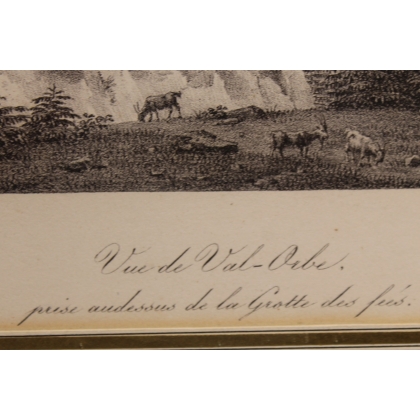 Vue de Val-Orbe.
prise audessus de la Grotte des fées.